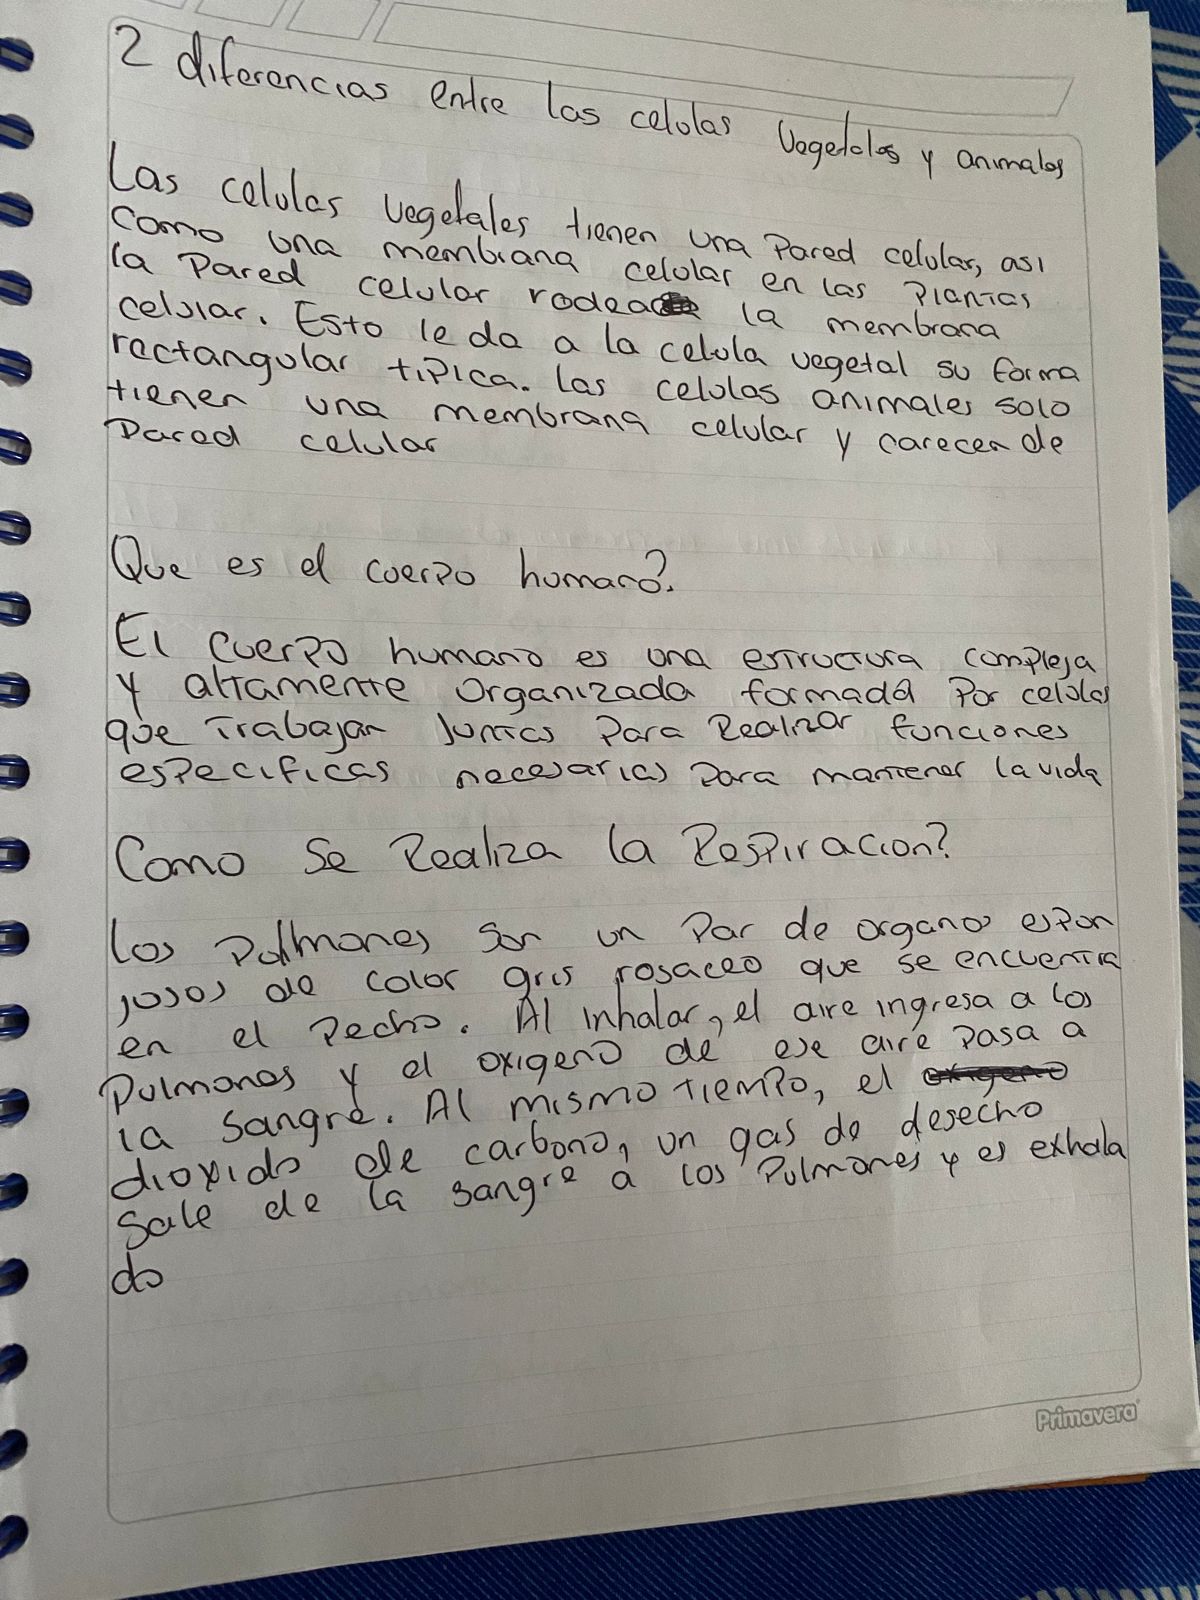 2 diferencias entre las celulas Vegetales y animales
Las celulas vegetales tienen una Pared celular, asi
como una membrana celular en las Plantas
la Pared celular rodea la membrana
celular. Esto le da a la celula vegetal su forma
rectangular tipica. las celulas animales solo
tienen una membrana celular y carecen de
Pared celular
Que es el cuerpo humano?.
El cuerpo humano es una estructura compleja
y altamente organizada formada Por celulas
que trabajan juntas Para Realizar funciones
especificas necesarias para mantener la vida
Como se Realiza la Respiracion?
los Pulmones son un Par de organos espon
josos de color gris rosaceo que se encuentra
en el Pecho. Al inhalar, el aire ingresa a los
Pulmones y el oxigeno de ese aire pasa a
la sangre. Al mismo tiempo, el oxigeno
dioxido de carbono, un gas de desecho
sale de la sangre a los Pulmones y es exhala
do
Primavera